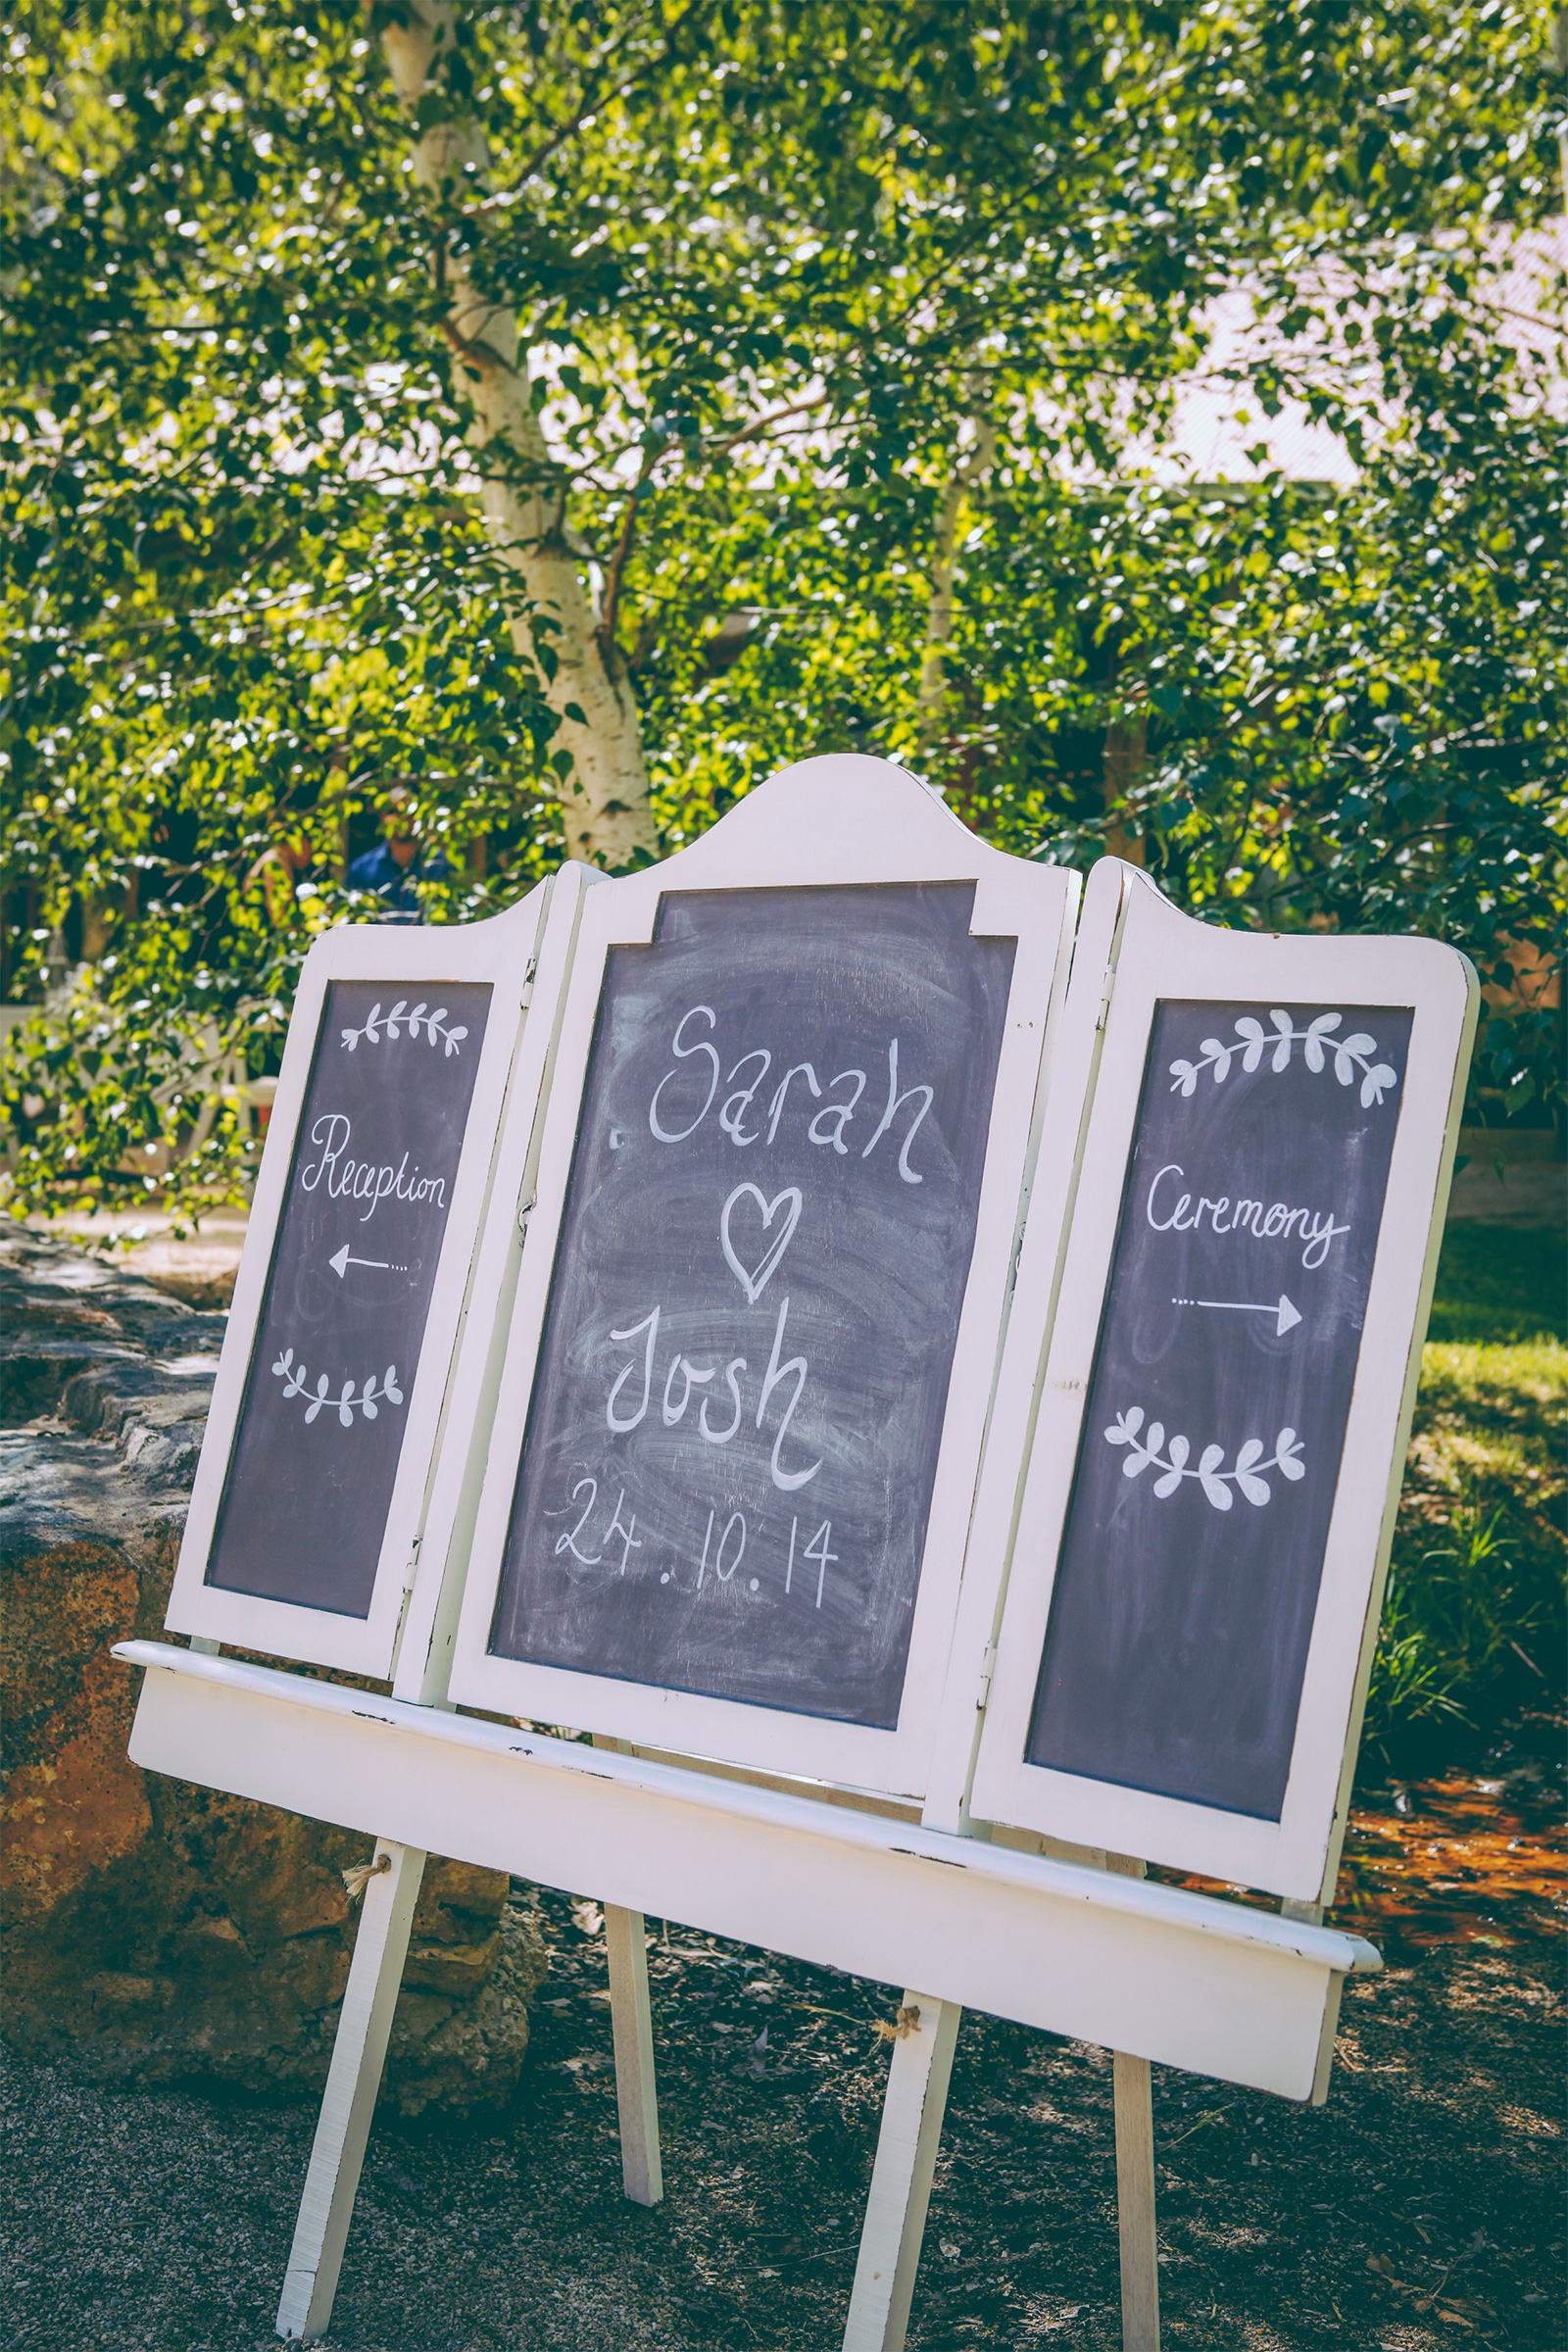 Reception
Sarah
Josh
24.10.14
Ceremony